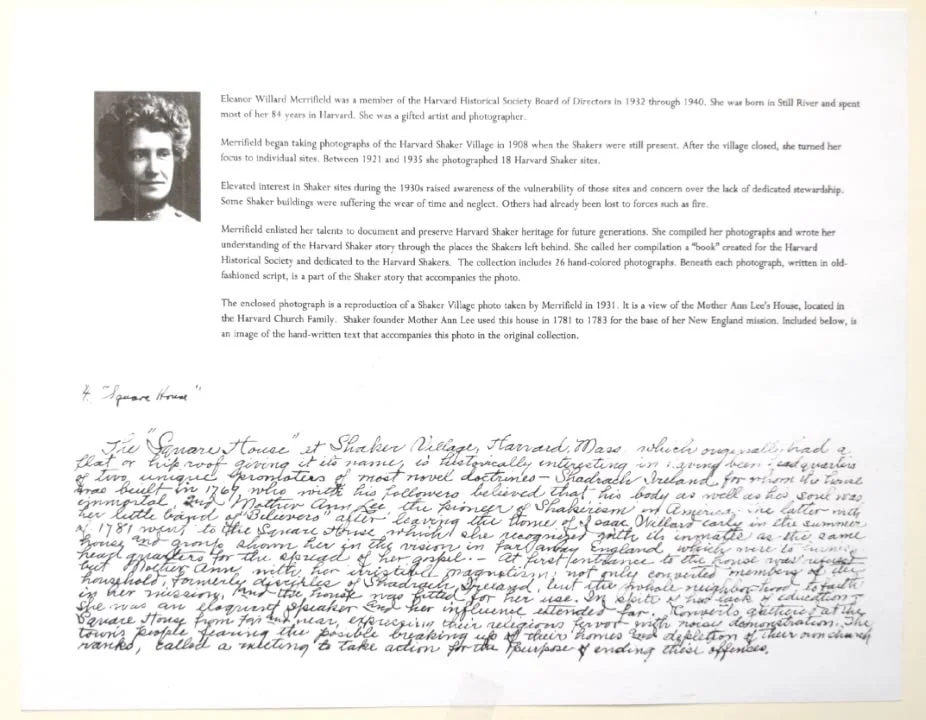 Eleanor Willard Merrifield was a member of the Harvard Historical Society Board of Directors in 1932 through 1940. She was born in Still River and spent
most of her 84 years in Harvard. She was a gifted artist and photographer.
Merrifield began taking photographs of the Harvard Shaker Village in 1908 when the Shakers were still present. After the village closed, she turned her
focus to individual sites. Between 1921 and 1935 she photographed 18 Harvard Shaker sites.
Elevated interest in Shaker sites during the 1930s raised awareness of the vulnerability of those sites and concern over the lack of dedicated stewardship.
Some Shaker buildings were suffering the wear of time and neglect. Others had already been lost to forces such as fire.
Merrifield enlisted her talents to document and preserve Harvard Shaker heritage for future generations. She compiled her photographs and wrote her
understanding of the Harvard Shaker story through the places the Shakers left behind. She called her compilation a "book" created for the Harvard
Historical Society and dedicated to the Harvard Shakers. The collection includes 26 hand-colored photographs. Beneath each photograph, written in old-
fashioned script, is a part of the Shaker story that accompanies the photo.
The enclosed photograph is a reproduction of a Shaker Village photo taken by Merrifield in 1931. It is a view of the Mother Ann Lee's House, located in
the Harvard Church Family. Shaker founder Mother Ann Lee used this house in 1781 to 1783 for the base of her New England mission. Included below, is
an image of the hand-written text that accompanies this photo in the original collection.
4. "Square House"
The "Square House" at Shaker Village, Harvard, Mass. which originally had a
flat or hip roof giving it its name, is historically interesting in having been head quarters
of two unique promoters of most novel doctrines - Shadrach Ireland, for whom the house
was built in 1769 who with his followers believed that his body as well as his soul was
immortal and Mother Ann Lee the pioneer of Shakerism in America. The latter with
her little band of "Believers" after leaving the home of Isaac Willard early in the summer
of 1781 went to the Square House which she recognized with its inmates as the same
house and group shown her in the vision in far away England which were to
head quarters for the spread of her gospel. - At first entrance to the house was
but Mother Ann, with her irresistible magnetism, not only converted members of the
household, formerly disciples of Shadrach Ireland, but the whole neighborhood to faith
in her mission, and the house was fitted for her use. In spite of her lack of education -
she was an eloquent speaker and her influence extended far. Converts gathered at the
Square House from far and near, expressing their religious fervor with noisy demonstration. The
town's people fearing the posible breaking up of their homes and depletion of their own church
ranks, called a meeting to take action for the purpose of ending these offences.